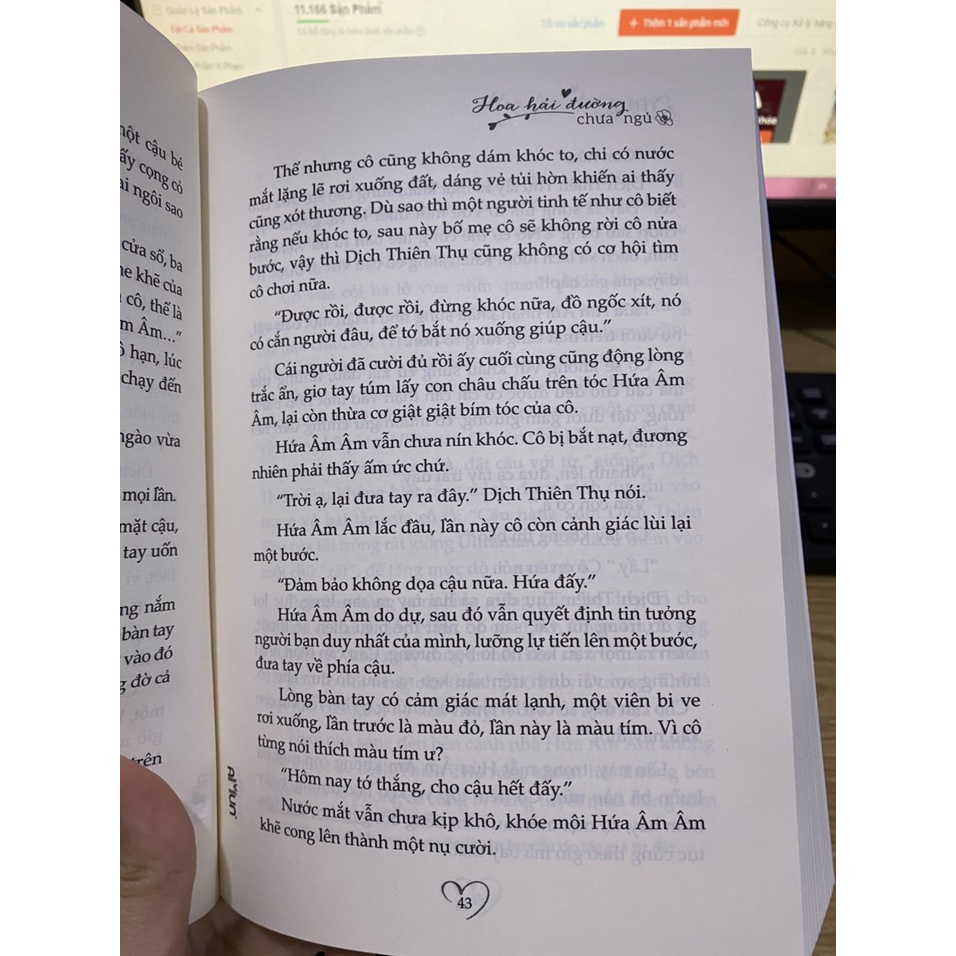 Quản Lý Sản Phẩm
Tất Cả Sản Phẩm
11.166 Sản Phẩm
+ Thêm 1 sản phẩm mới
một cậu bé
ấy cọng cỏ
ai ngôi sao
cửa sổ, ba
khẽ của
cô, thế là
m Âm...”
hạn, lúc
chạy đến
ngào vừa
mọi lần.
mặt cậu,
tay uốn
ng nắm
bàn tay
vào đó
đờ cả
trên
Hoa hải đường
chưa ngủ
Thế nhưng cô cũng không dám khóc to, chỉ có nước
mắt lặng lẽ rơi xuống đất, dáng vẻ tủi hờn khiến ai thấy
cũng xót thương. Dù sao thì một người tinh tế như cô biết
rằng nếu khóc to, sau này bố mẹ cô sẽ không rời cô nửa
bước, vậy thì Dịch Thiên Thụ cũng không có cơ hội tìm
cô chơi nữa.
“Được rồi, được rồi, đừng khóc nữa, đồ ngốc xít, nó
có cắn người đâu, để tớ bắt nó xuống giúp cậu.”
Cái người đã cười đủ rồi ấy cuối cùng cũng động lòng
trắc ẩn, giơ tay túm lấy con châu chấu trên tóc Hứa Âm
Âm, lại còn thừa cơ giật giật bím tóc của cô.
Hứa Âm Âm vẫn chưa nín khóc. Cô bị bắt nạt, đương
nhiên phải thấy ấm ức chứ.
“Trời ạ, lại đưa tay ra đây.” Dịch Thiên Thụ nói.
Hứa Âm Âm lắc đầu, lần này cô còn cảnh giác lùi lại
một bước.
“Đảm bảo không dọa cậu nữa. Hứa đấy.”
Hứa Âm Âm do dự, sau đó vẫn quyết định tin tưởng
người bạn duy nhất của mình, lưỡng lự tiến lên một bước,
đưa tay về phía cậu.
Lòng bàn tay có cảm giác mát lạnh, một viên bi ve
rơi xuống, lần trước là màu đỏ, lần này là màu tím. Vì cô
từng nói thích màu tím ư?
“Hôm nay tớ thắng, cho cậu hết đấy.”
Nước mắt vẫn chưa kịp khô, khóe môi Hứa Âm Âm
khẽ cong lên thành một nụ cười.
43